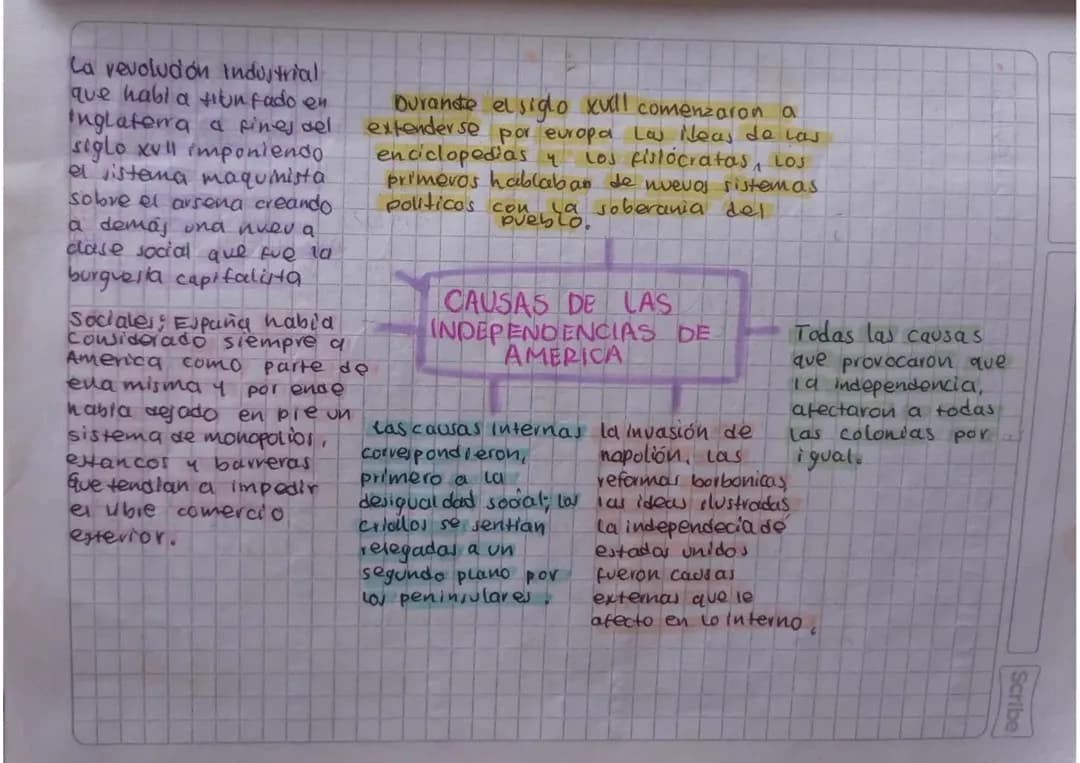 La revolución Industrial
que había triunfado en
Inglaterra a fines del
siglo XVII imponiendo
el sistema maquinista
sobre el arsena creando
a demás una nueva
clase social que fue la
burguesía capitalista
Durante el siglo XVIII comenzaron a
extenderse por europa Las ideas de Las
enciclopedias y Los fisiócratas, Los
primeros hablaban de nuevos sistemas
políticos con la soberania del
pueblo.
CAUSAS DE LAS
INDEPENDENCIAS DE
AMERICA
Sociales; España había
Considerado siempre a
America como parte de
ella misma y por ende
había dejado en pie un
sistema de monopolios,
estancos y barreras
que tendían a impedir
el libre comercio
exterior.
Las causas internas
correspondieron,
primero a La
desigualdad social; los
criollos se sentían
relegadas a un
segundo plano por
Los peninsulares.
la invasión de
napolión, Las
reformas borbonicas
las ideas ilustradas
La independecia de
estados unidos
fueron causas
externas que le
afecto en Lo interno.
Todas las causas
que provocaron que
la independencia,
afectaron a todas
Las colonias por
igual.
Scribe